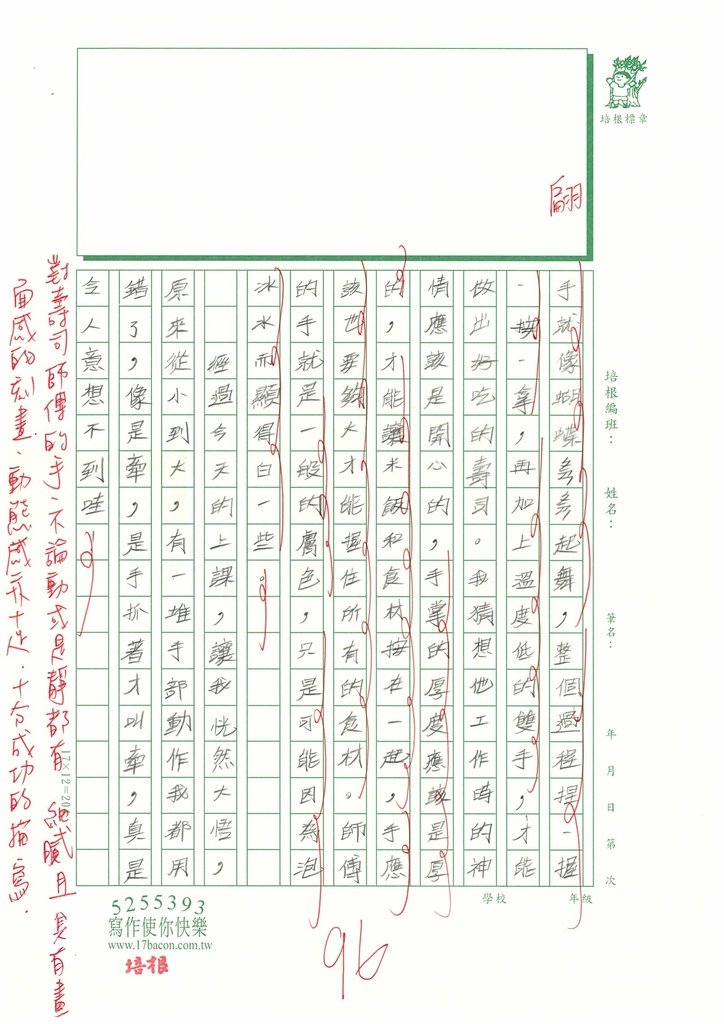 培根標章
翩
培根編班： 姓名： 筆名： 年 月 日 第 次
手就像蝴蝶翩翩起舞，整個過程捏一握
一按一拿，再加上溫度低的雙手，才能
做出好吃的壽司。我猜想他工作時的神
情應該是開心的，手掌的厚度應該是厚
的，才能讓米飯和食材按在一起，手應
該也要夠大才能握住所有的食材。師傅
的手就是一般的膚色，只是可能因為泡
冰水而顯得白一些。
經過今天的上課，讓我恍然大悟，
原來從小到大，有一堆手部動作我都用
錯了，像是牽，是手抓著才叫牽，真是
令人意想不到哇
對壽司師傅的手，不論動或是靜都有細膩且具有畫
面感的刻畫，動態感亦十足，十分成功的描寫．
學校 年級
5255393
寫作使你快樂
www.17bacon.com.tw
培根
96